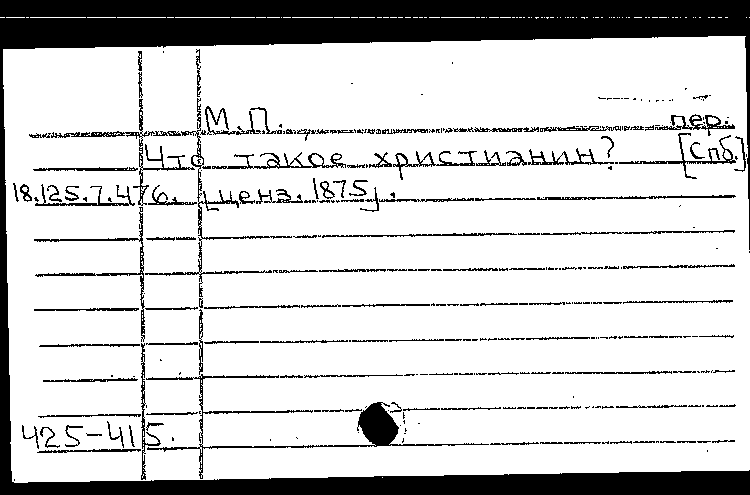 М.П. пер.
Что такое христианин? [Спб.]
18.125.7.476. [ценз. 1875].
425-415.